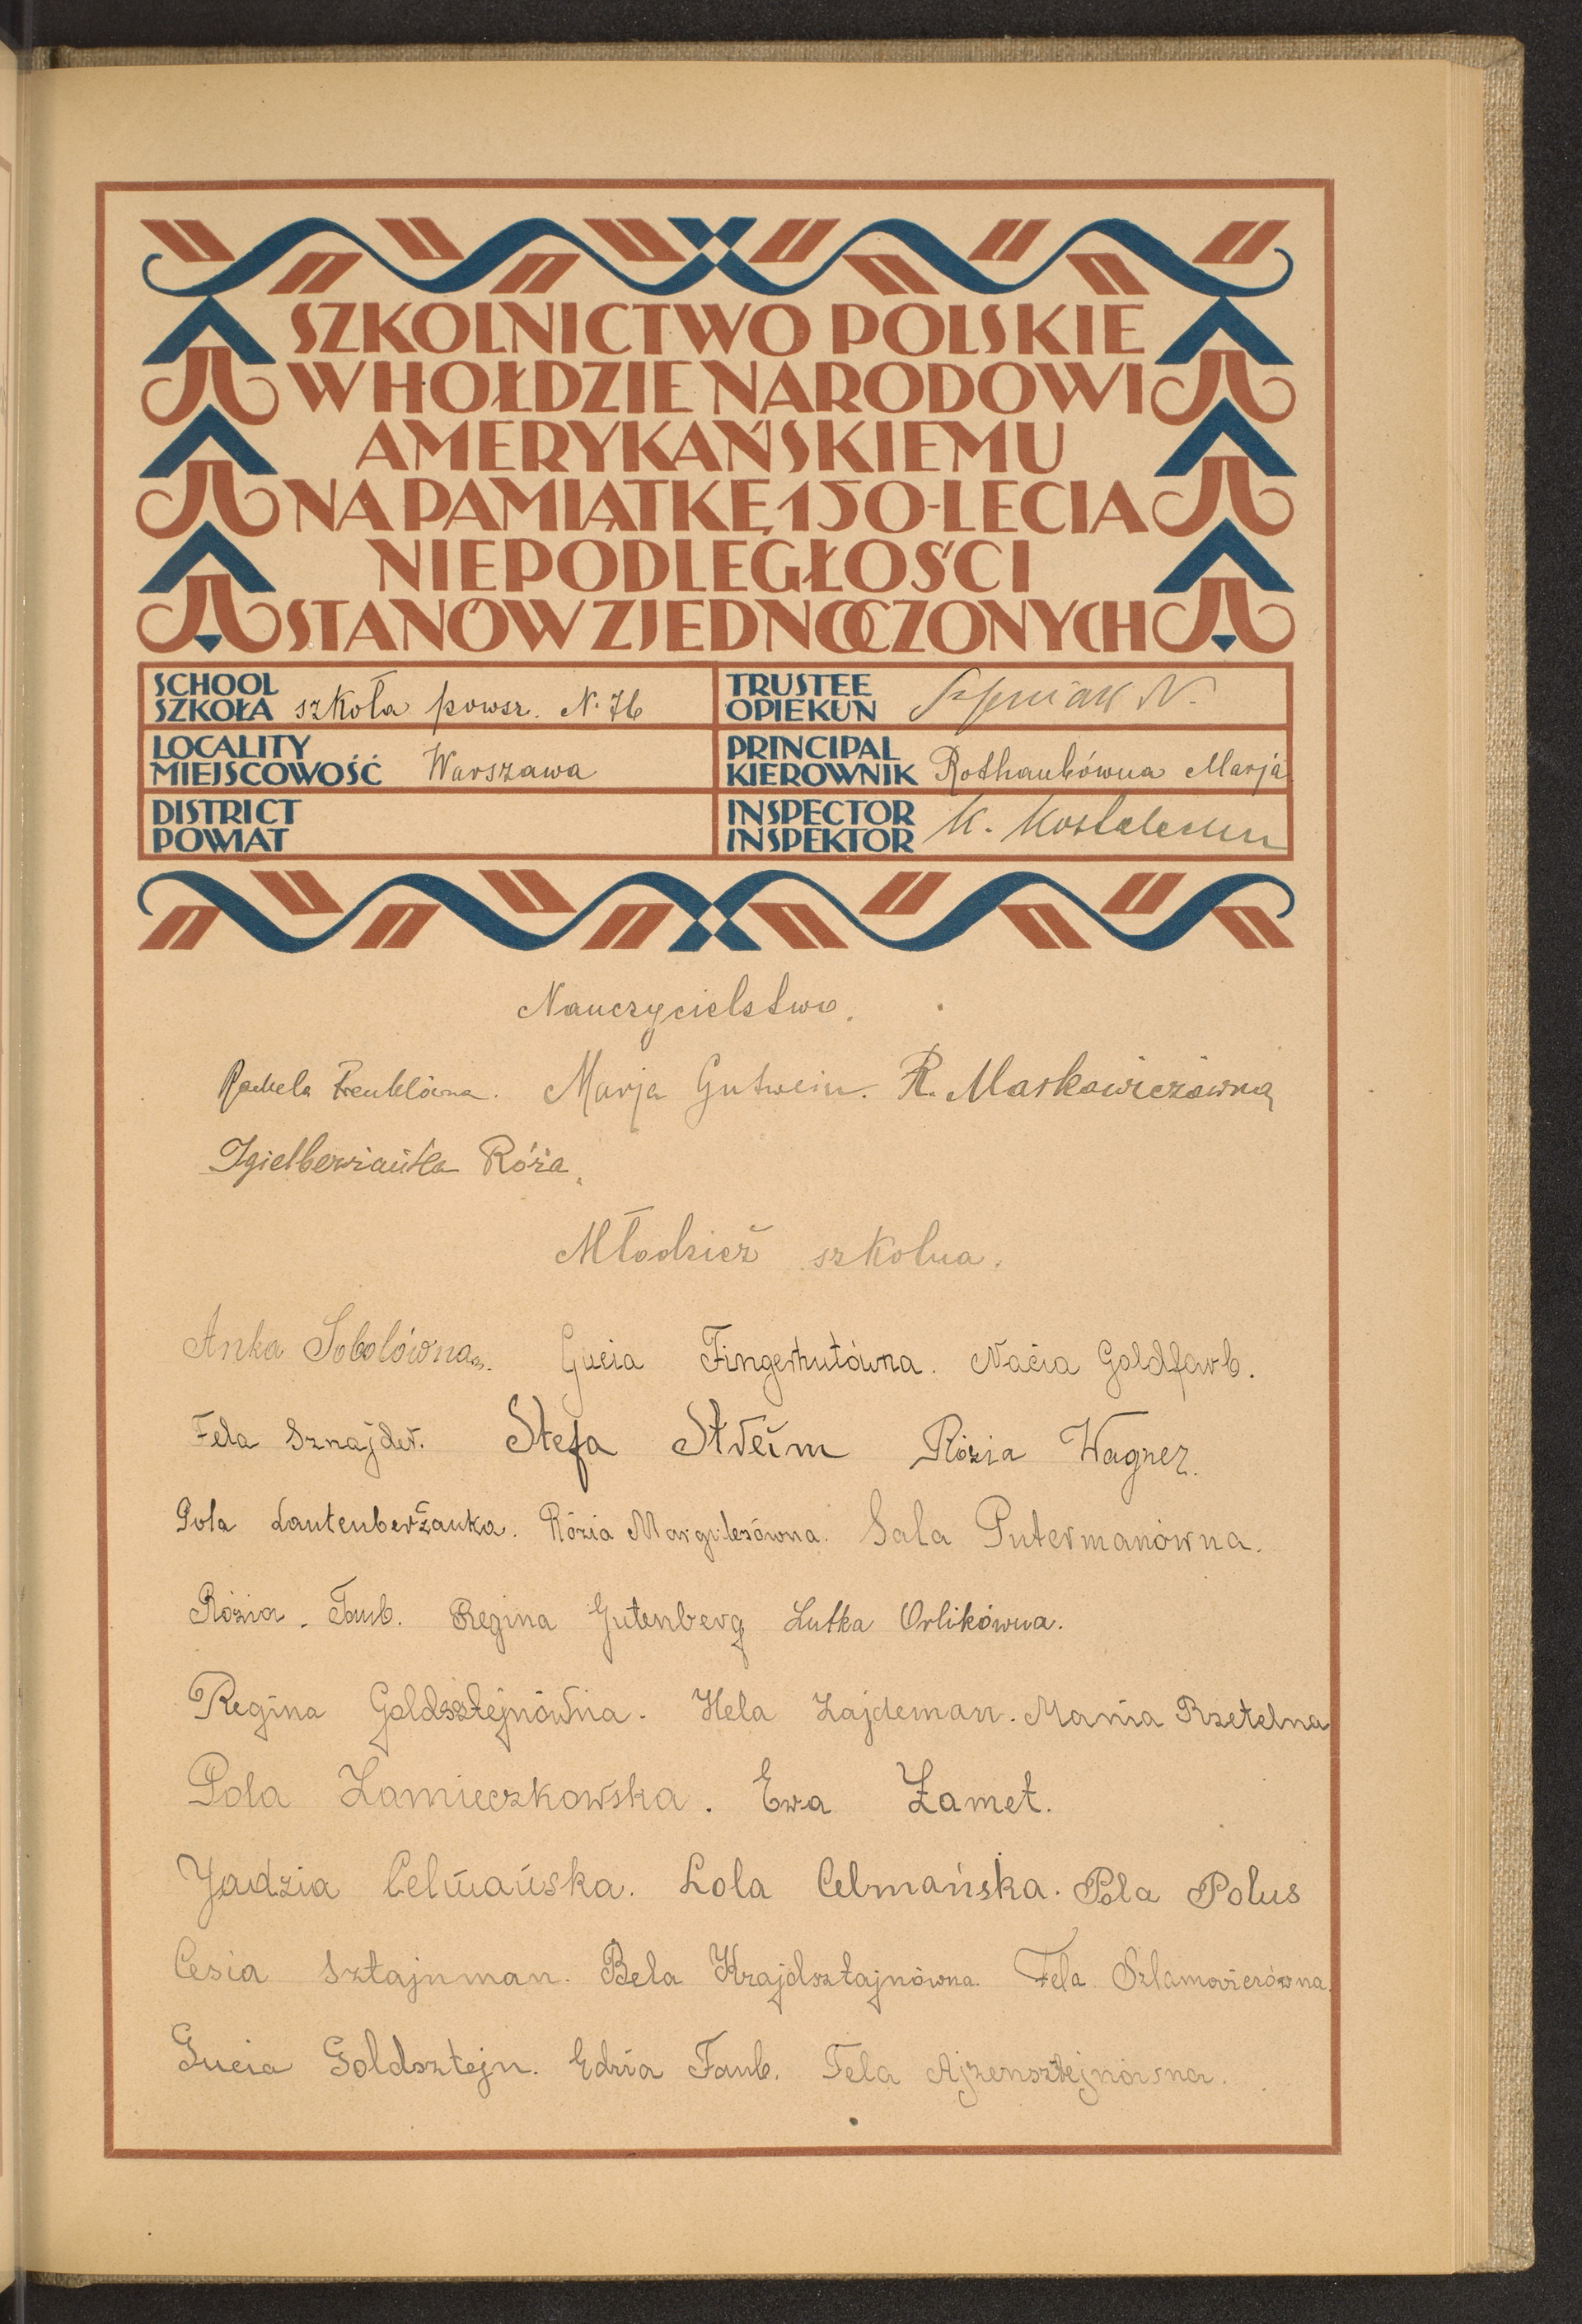 SZKOLNICTWO POLSKIE
W HOŁDZIE NARODOWI
AMERYKAŃSKIEMU
NA PAMIĄTKĘ 150-LECIA
NIEPODLEGŁOŚCI
STANÓW ZJEDNOCZONYCH
SCHOOL
SZKOŁA szkoła powsz. N. 76
TRUSTEE
OPIEKUN N.
LOCALITY
MIEJSCOWOŚĆ Warszawa
PRINCIPAL
KIEROWNIK Rothaubówna Marja
DISTRICT
POWIAT
INSPECTOR
INSPEKTOR K.
Nauczycielstwo.
Rachela Frenklówna. Marja Gutwein. R. Maskowiczówna
Igielberżanka Róża.
Młodzież szkolna.
Anka Sobolówna. Gucia Fingerhutówna. Nacia Goldfarb.
Fela Sznajder. Stefa Streim Rózia Wagner.
Pola Lautenberżanka. Rózia Margulesówna. Sala Putermanówna.
Rózia. Taub. Regina Gutenberg Lutka Orlikówna.
Regina Goldsztejnówna. Hela Zajdeman. Mania Rzetelna
Pola Zamieczkowska. Ewa Zamet.
Jadzia Celmańska. Lola Celmańska. Pola Polus
Cesia Sztajnman. Bela Krajdsztajnówna. Fela Szlamowiczówna.
Gucia Goldsztejn. Edzia Taub. Fela Ajzensztejnówna.